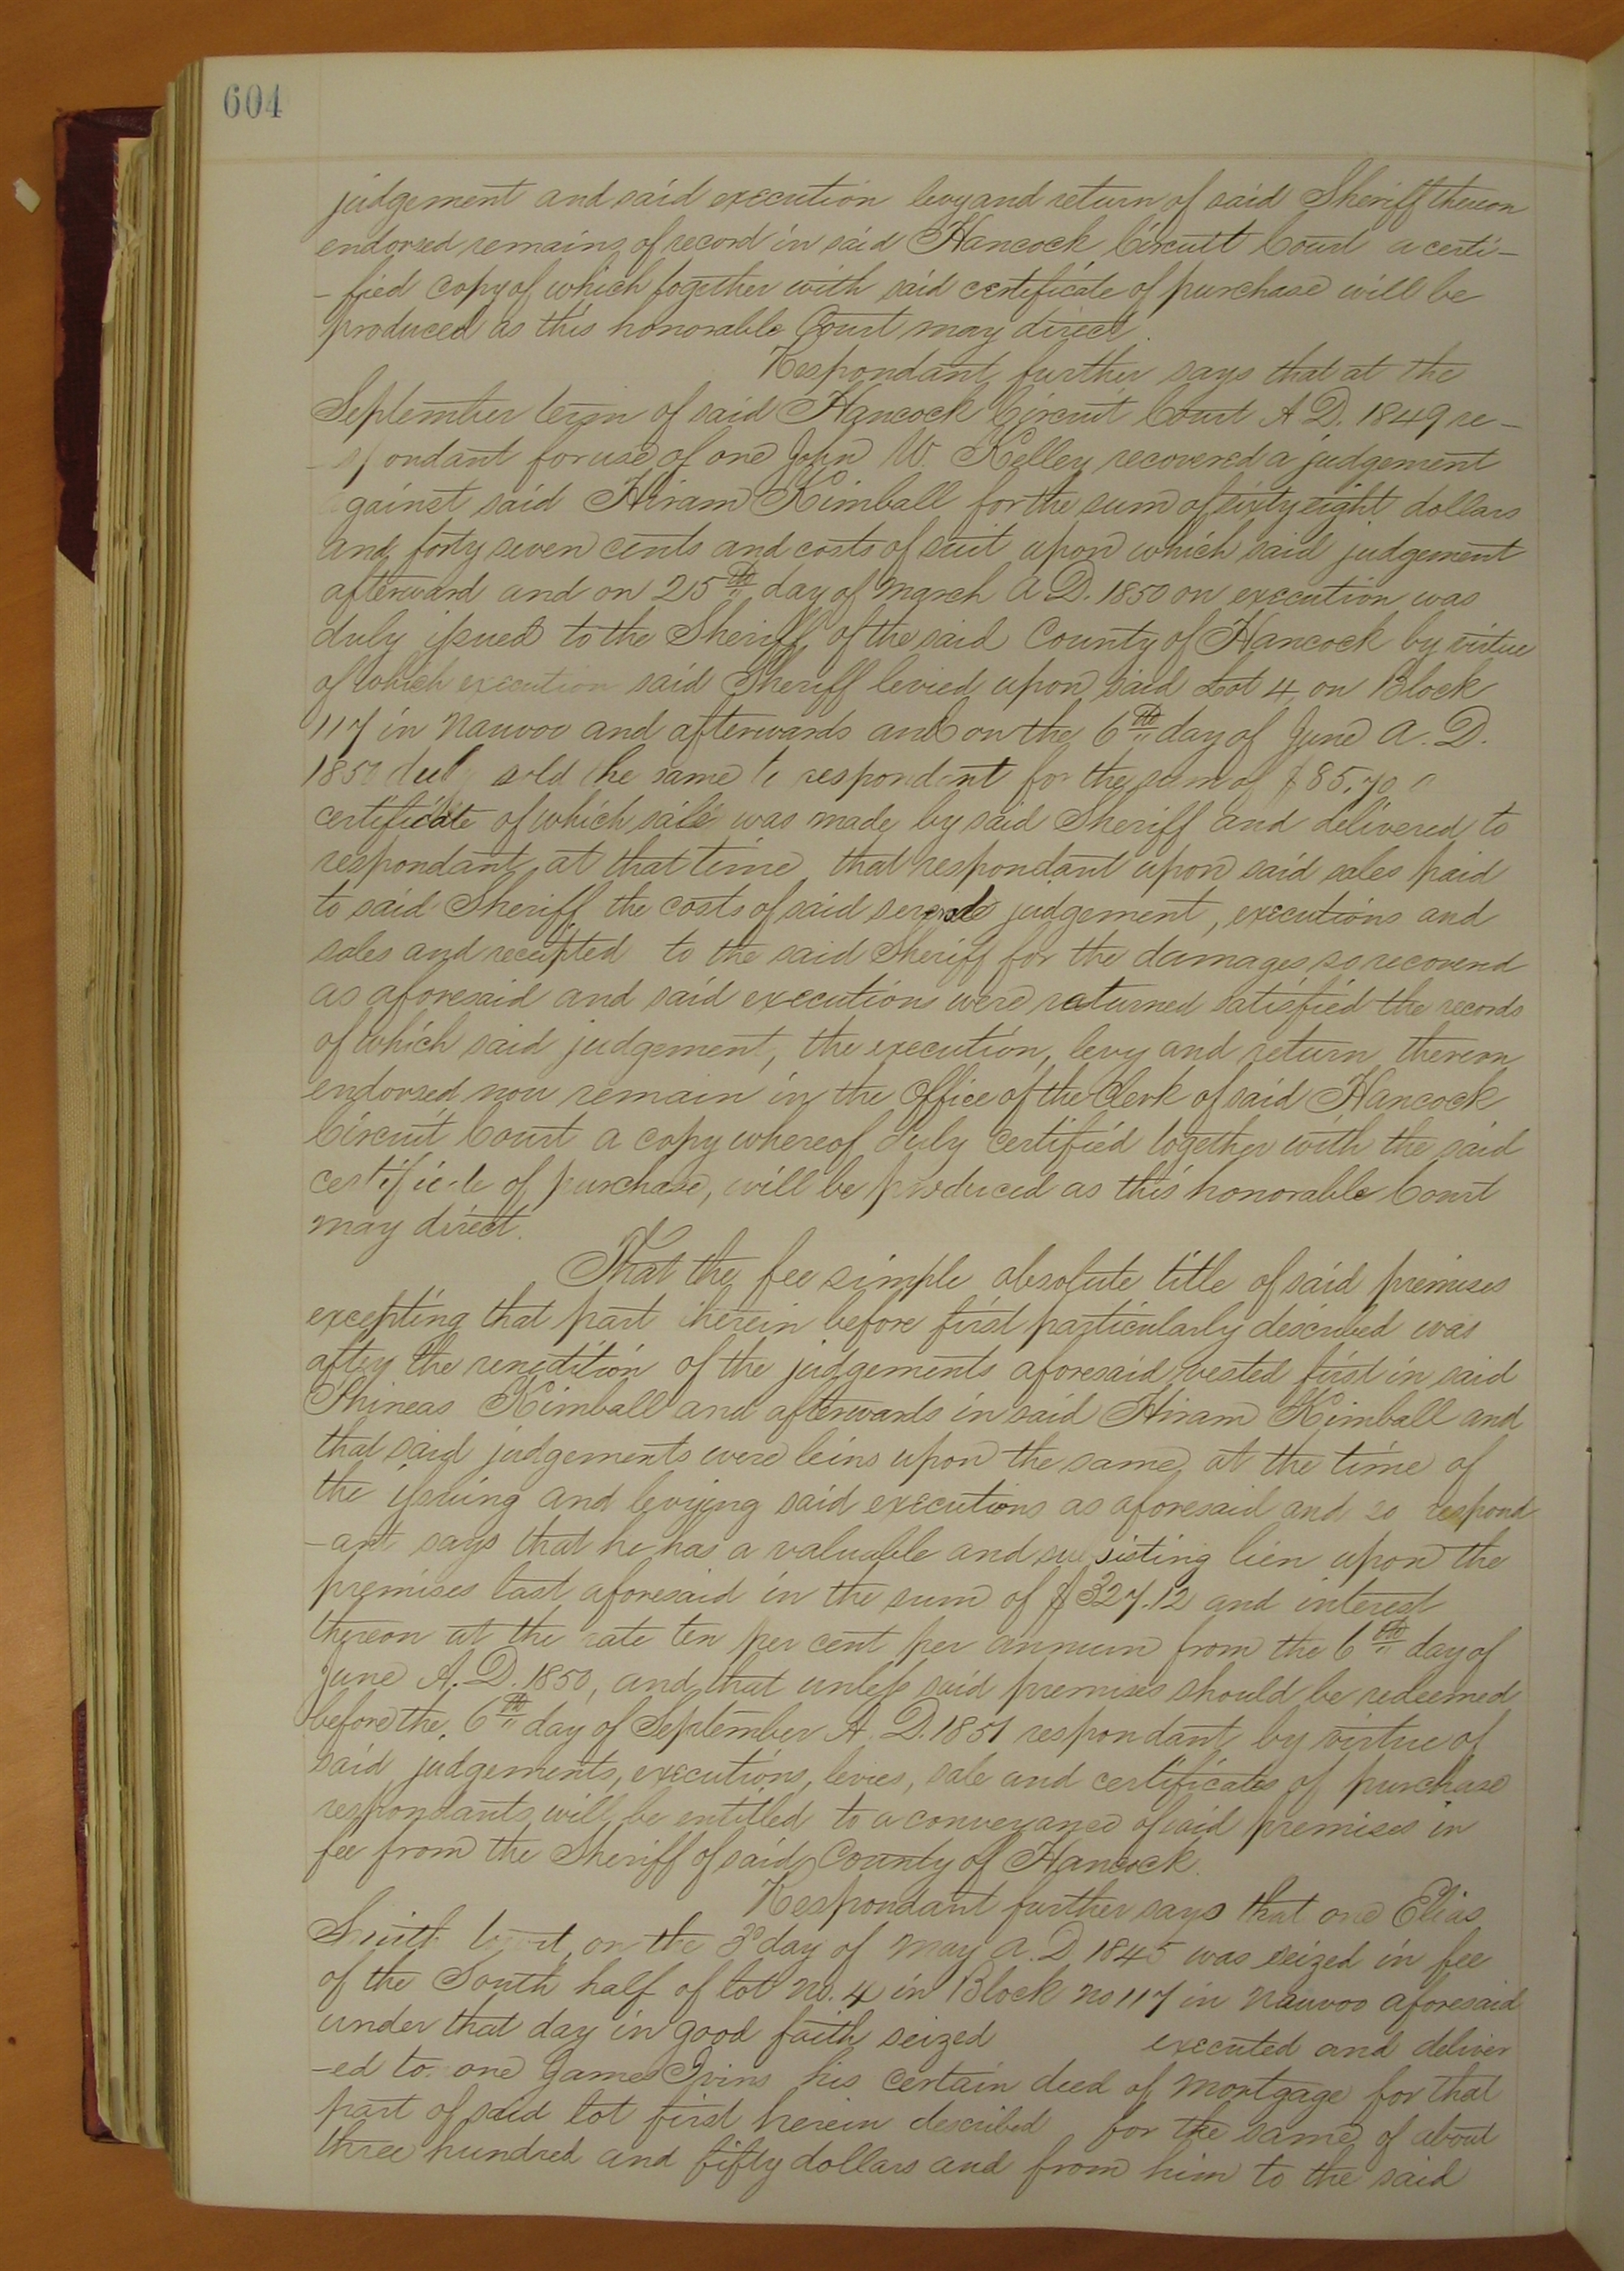 604
judgement and said execution levy and return of said Sheriff thereon
endorsed remains of record in said Hancock Circuit Court a certi-
-fied copy of which together with said certificate of purchase will be
produced as this honorable Court may direct.
Respondant further says that at the
September term of said Hancock Circuit Court A D. 1849 re-
-spondant for use of one John W. Kelley recovered a judgement
against said Hiram Kimball for the sum of sixty eight dollars
and forty seven cents and costs of suit upon which said judgement
afterward and on 25th day of March A D. 1850 on execution was
duly issued to the Sheriff of the said County of Hancock by virtue
of which execution said Sheriff levied upon said Lot 4 on Block
117 in Nauvoo and afterwards and on the 6th day of June A. D.
1850 duly sold the same to respondent for the sum of $85.70 a
certificate of which sale was made by said Sheriff and delivered to
respondant at that time that respondant upon said sales paid
to said Sheriff the costs of said judgement, executions and
sales and receipted to the said Sheriff for the damages so recoverd
as aforesaid and said executions were returned satisfied the records
of which said judgement, the execution, levy and return thereon
endorsed now remain in the Office of the Clerk of said Hancock
Circuit Court a copy whereof duly certified together with the said
certificate of purchase, will be produced as this honorable Court
may direct.
That the fee simple absolute title of said premises
excepting that part herein before first particularly described was
after the renedition of the judgements aforesaid vested first in said
Phineas Kimball and afterwards in said Hiram Kimball and
that said judgements were leins upon the same at the time of
the issuing and levying said executions as aforesaid and so respond
-ant says that he has a valuable and subsisting lien upon the
premises last aforesaid in the sum of $327.12 and interest
thereon at the rate ten per cent per annum from the 6th day of
June A. D. 1850, and that unless said premises should be redeemed
before the 6th day of September A. D. 1851 respondant by virtue of
said judgements, executions, levies, sale and certificates of purchase
respondants will be entitled to a conveyance of said premises in
fee from the Sheriff of said County of Hancock.
Respondant further says that one Elias
Smith on the 3d day of May A. D. 1845 was seized in fee
of the South half of lot No. 4 in Block no 117 in Nauvoo aforesaid
under that day in good faith seized executed and deliver
-ed to one James Ivins his certain deed of mortgage for that
part of said lot first herein described for the same of about
three hundred and fifty dollars and from him to the said